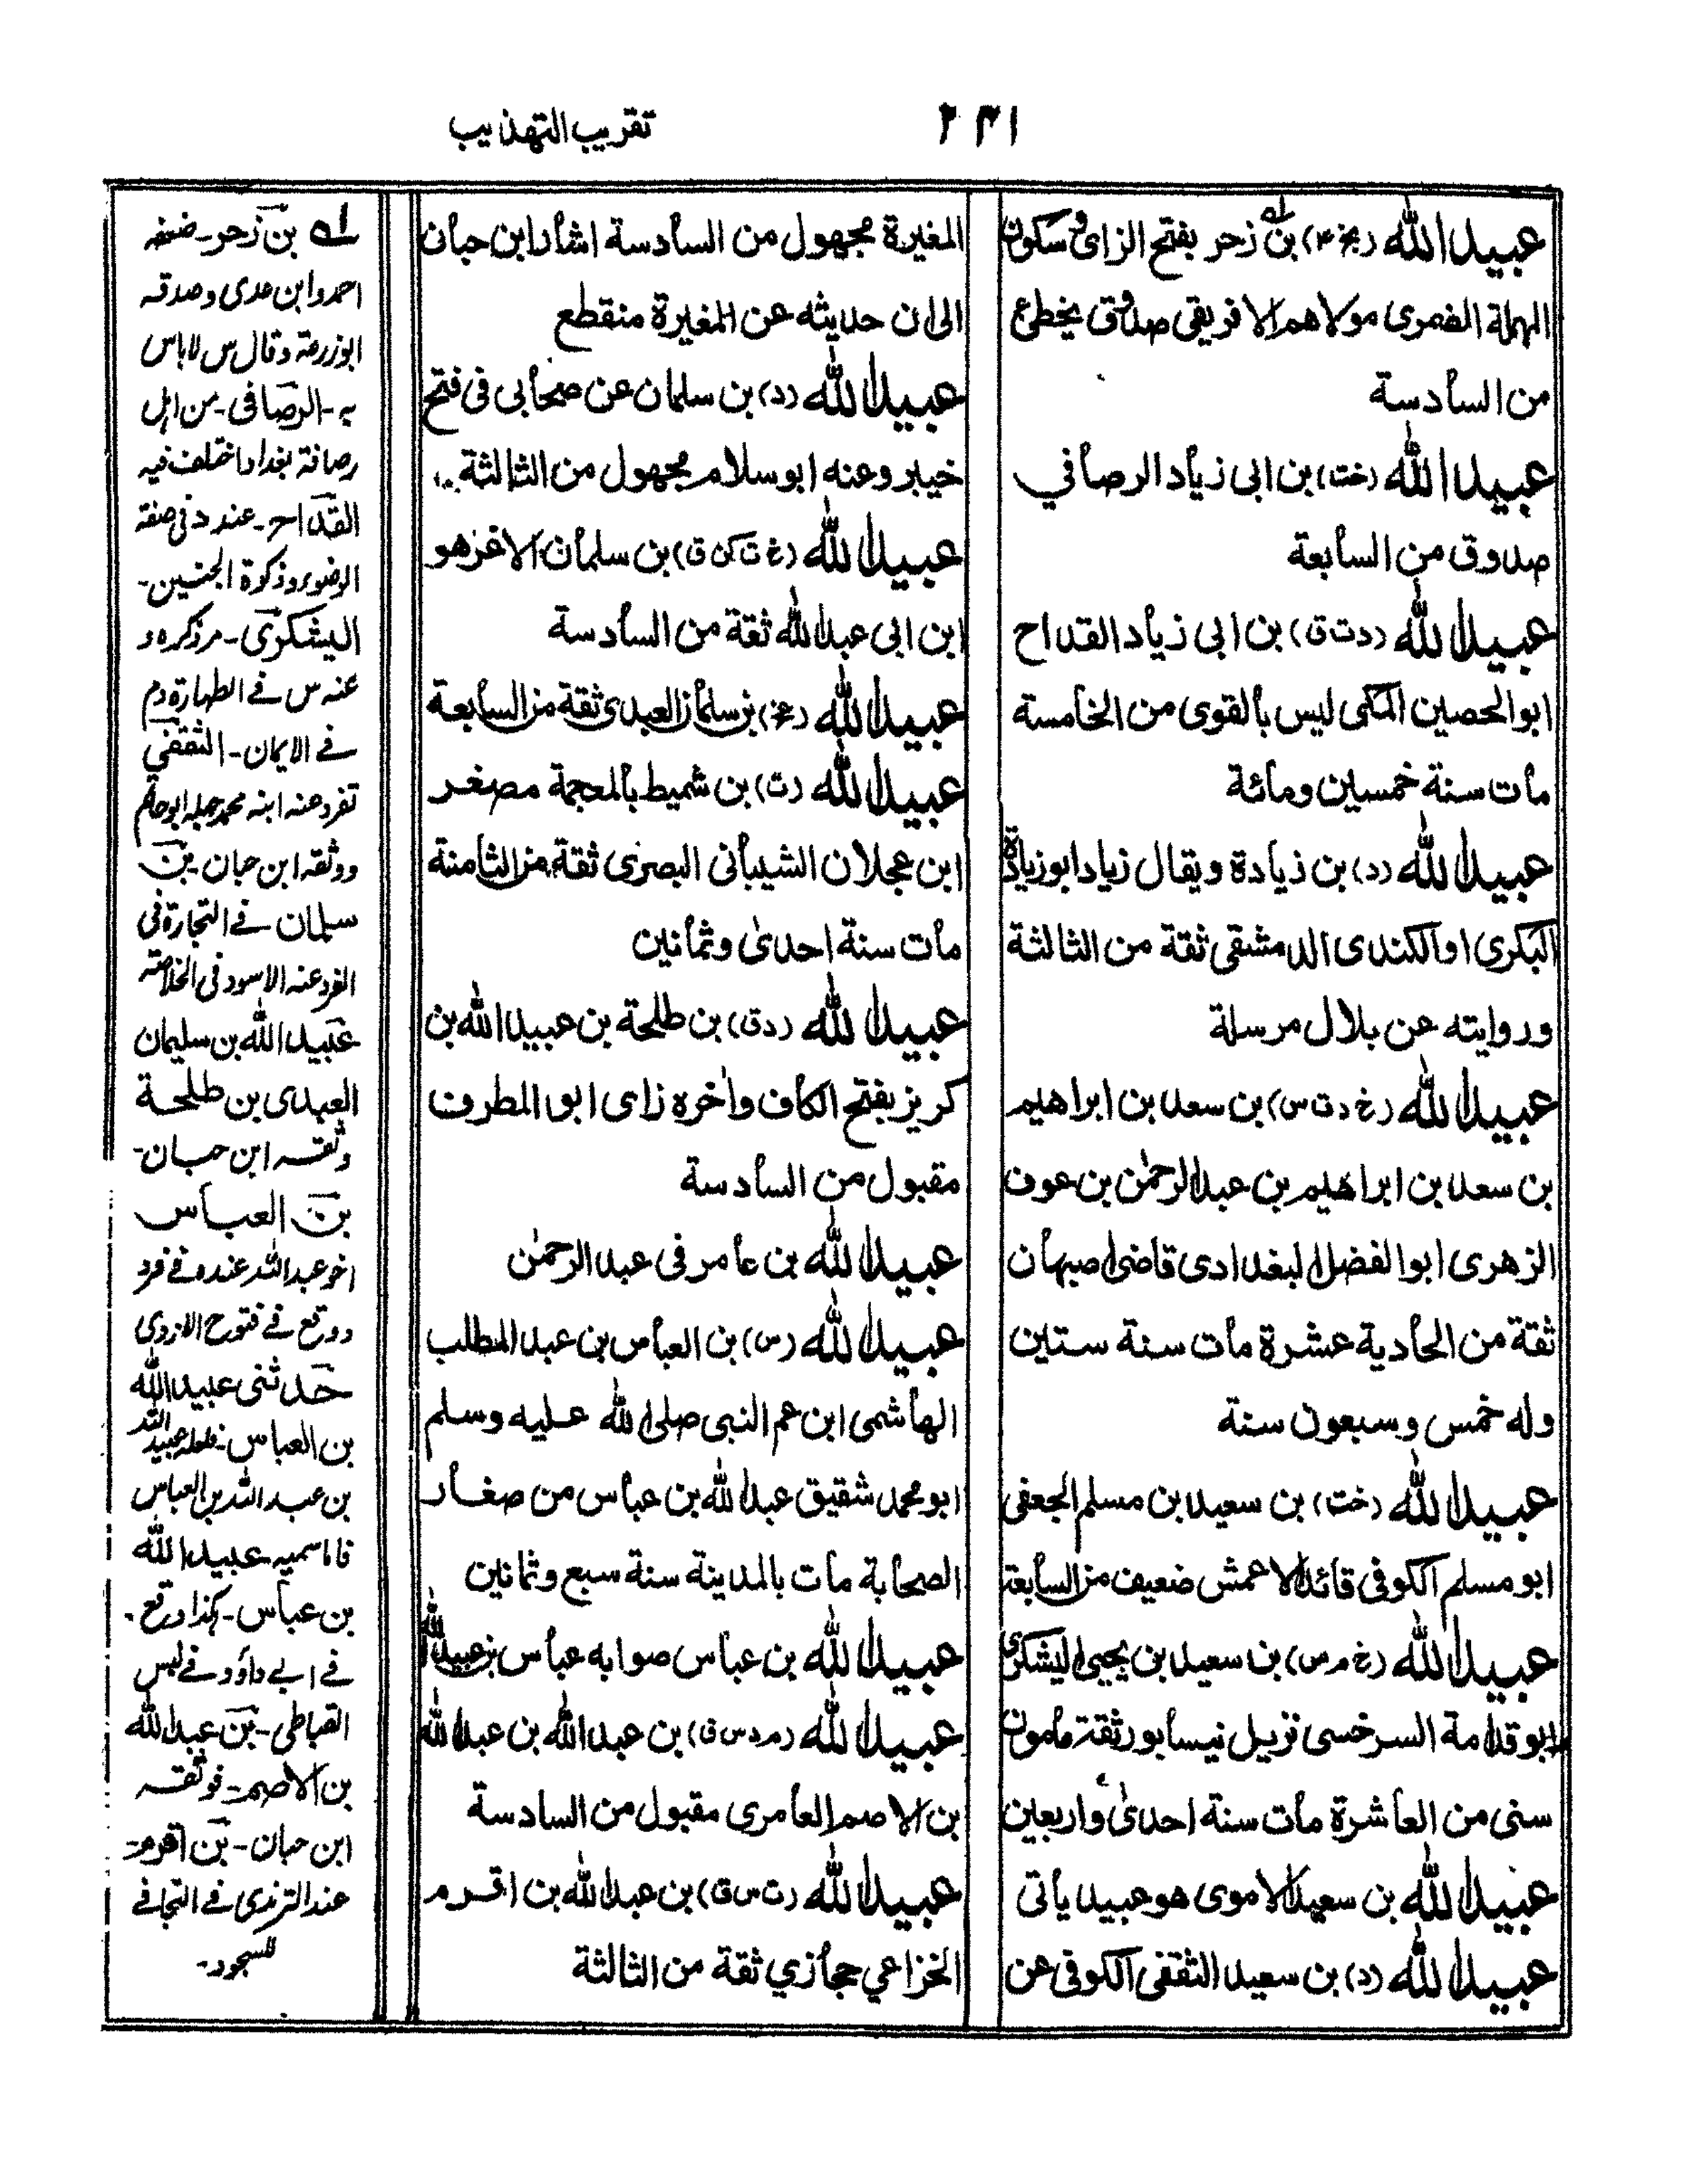 ٢٣١
تقريب التهذيب
عبيد الله (بخ ٤) بن زحر بفتح الزاى وسكون
المهملة الضمرى مولاهم الافريقى صدوق يخطئ
من السأدسة
عبيد الله (خت) بن ابى زيأد الرصأفي
صدوق من السأبعة
عبيد الله (د ت ق) بن ابى زيأد القداح
ابو الحصين المكى ليس بألقوى من الخأمسة
مأت سنة خمسين ومأئة
عبيد الله (د) بن زيادة ويقال زياد ابو زيادة
البكرى او الكندى الدمشقى ثقة من الثالثة
وروايته عن بلال مرسلة
عبيد الله (خ د ت س) بن سعد بن ابراهيم
بن سعد بن ابراهيم بن عبد الرحمٰن بن عوف
الزهرى ابو الفضل البغدادى قاضى اصبهأن
ثقة من الحأدية عشرة مأت سنة ستين
وله خمس وسبعون سنة
عبيد الله (خت) بن سعيد بن مسلم الجعفى
ابو مسلم الكوفى قائد الاعمش ضعيف من السأبعة
عبيد الله (خ م س) بن سعيد بن يحيى اليشكرى
ابو قدامة السرخسى نزيل نيسأبور ثقة مأمون
سنى من العأشرة مأت سنة احدىٰ واربعين
عبيد الله بن سعيد الاموى هو عبيد يأتى
عبيد الله (د) بن سعيد الثقفى الكوفى عن
المغيرة مجهول من السأدسة اشأر ابن حبأن
الى ان حديثه عن المغيرة منقطع
عبيد الله (د) بن سلمان عن صحأبى فى فتح
خيبر وعنه ابو سلام مجهول من الثالثة
عبيد الله (غ ت كن ق) بن سلمأن الاغر هو
ابن ابى عبد الله ثقة من السأدسة
عبيد الله (عخ) بن سلمأن العبدى ثقة من السأبعة
عبيد الله (ت) بن شميط بألمعجمة مصغر
ابن عجلان الشيبأنى البصرى ثقة من الثامنة
مأت سنة احدىٰ وثمأنين
عبيد الله (د ق) بن طلحة بن عبيد الله بن
كريز بفتح الكأف واٰخره زاى ابو المطرف
مقبول من السأدسة
عبيد الله بن عأمر فى عبد الرحمٰن
عبيد الله (س) بن العبأس بن عبد المطلب
الهأشمى ابن عم النبى صلى الله عليه وسلم
ابو محمد شقيق عبد الله بن عبأس من صغأر
الصحأبة مأت بالمدينة سنة سبع وثمانين
عبيد الله بن عبأس صوابه عبأس بن عبيد الله
عبيد الله (م د س ق) بن عبد الله بن عبد الله
بن الاصم العأمرى مقبول من السادسة
عبيد الله (ت س ق) بن عبد الله بن اقرم
الخزاعي حجأزي ثقة من الثالثة
له بن زحر۔ ضعفه
احمد وابن مدى وصدقه
ابو زرعة وقال س لا باس
به۔ الرصافى۔ من اہل
رصافة بغداد اختلف فيه
القداح۔ عند د فى صفة
الوضوء وذكوة الجنين۔
اليشكرى۔ مر ذكره و
عنه س فے الطهارة و م
فے الايمان۔ الثقفى
تفرد عنه ابنه محمد جهله ابو حاتم
ووثقه ابن حبان۔ بن
سلمان۔ فے التجارة فى
انفرد عنه الاسود فى الخلاصة
عبيد الله بن سليمان
العبدى بن طلحة
وثقہ ابن حبان۔
بن العبأس
اخو عبد الله عنده فے فرد
ووقع فے فتوح الازدى
حدثنى عبيد الله
بن العباس۔ فلعله عبيد الله
بن عبد الله بن العباس
فاما سميه عبيد الله
بن عبأس۔ كذا وقع
فے ابے داؤد فے لبس
القباطى۔ بن عبد الله
بن الاصم۔ فوثقہ
ابن حبان۔ بن اقرم۔
عند الترمذى فے التجافے
للسجود۔